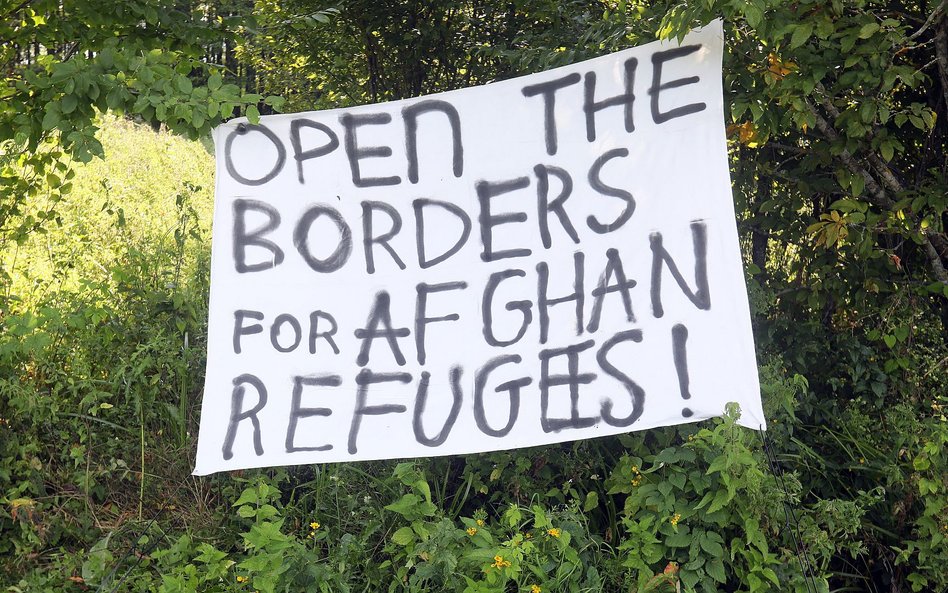 OPEN THE
BORDERS
FOR AFGHAN
REFUGEES!